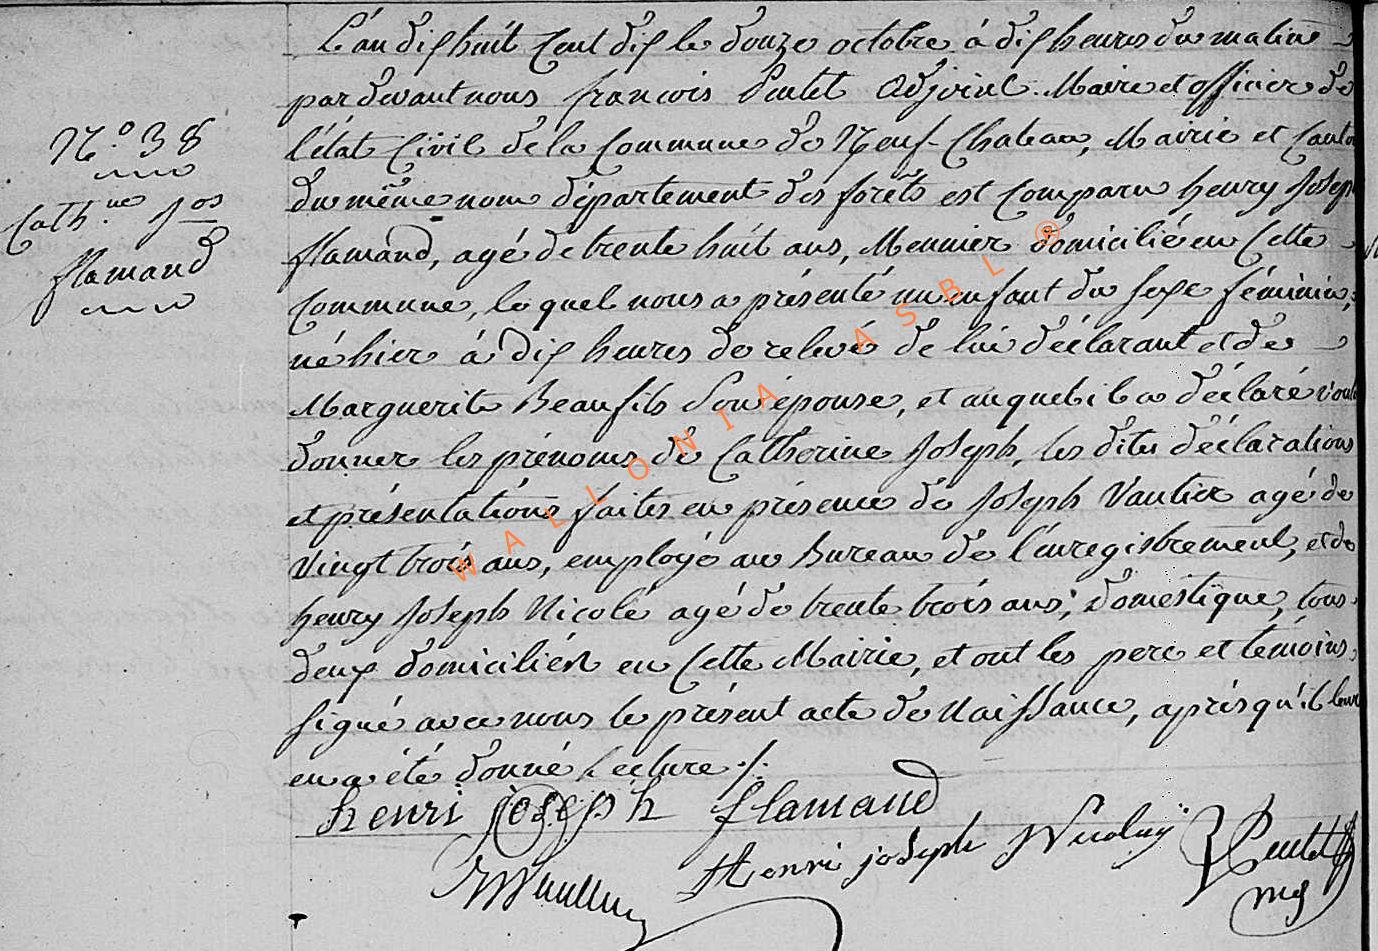 N.° 38
Cath.ne Jos
flamand
L'an dix huit Cent dix le douze octobre à dix heures du matin
par devant nous françois Pentet Adjoint Maire et officier de
l'état Civil de la Commune de Neuf-Chateau, Mairie et Canton
du même nom département des forêts est Comparu henry Joseph
flamand, agé de trente huit ans, Meunier domicilié en Cette
Commune, lequel nous a présenté un enfant du sexe féminin,
né hier à dix heures de relevé de lui déclarant et de
Marguerite Beaufils Son épouse, et auquel il a déclaré voul
donner les prénoms de Catherine Joseph, les dites déclarations
et présentations faites en présence de Joseph Vautier agé de
Vingt trois ans, employé au Bureau de l'enregistrement, et de
henry Joseph Nicolé agé de trente trois ans, domestique, tous
deux domiciliés en Cette Mairie, et ont les pere et témoins
signé avec nous le présent acte de Naissance, après qu'il leur
en a été donné Lecture ./.
henri joseph flamand
Henri joseph
WALLONIA ASBL ®